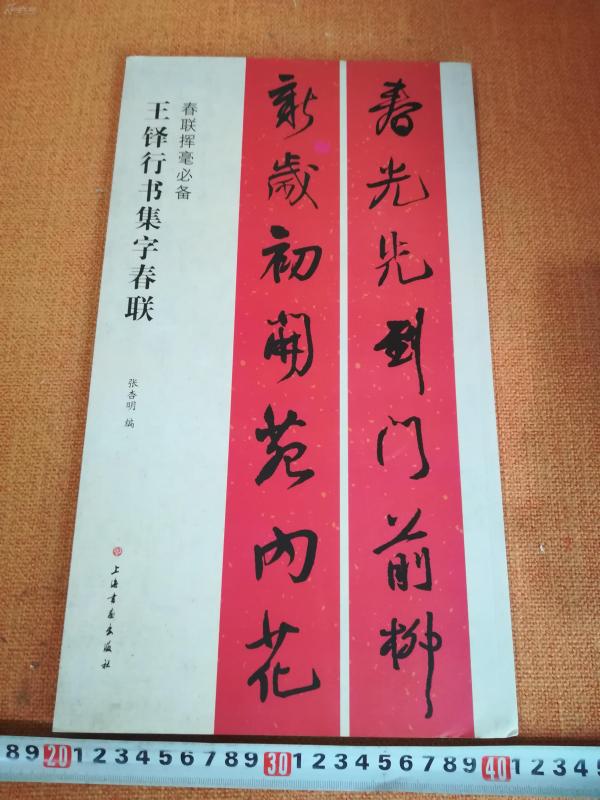 春光先到门前柳
新歲初開苑内花
春联挥毫必备
王铎行书集字春联
张杏明 编
上海書画出版社
8 9 20 1 2 3 4 5 6 7 8 9 30 1 2 3 4 5 6 7 8 9 40 1 2 3 4 5